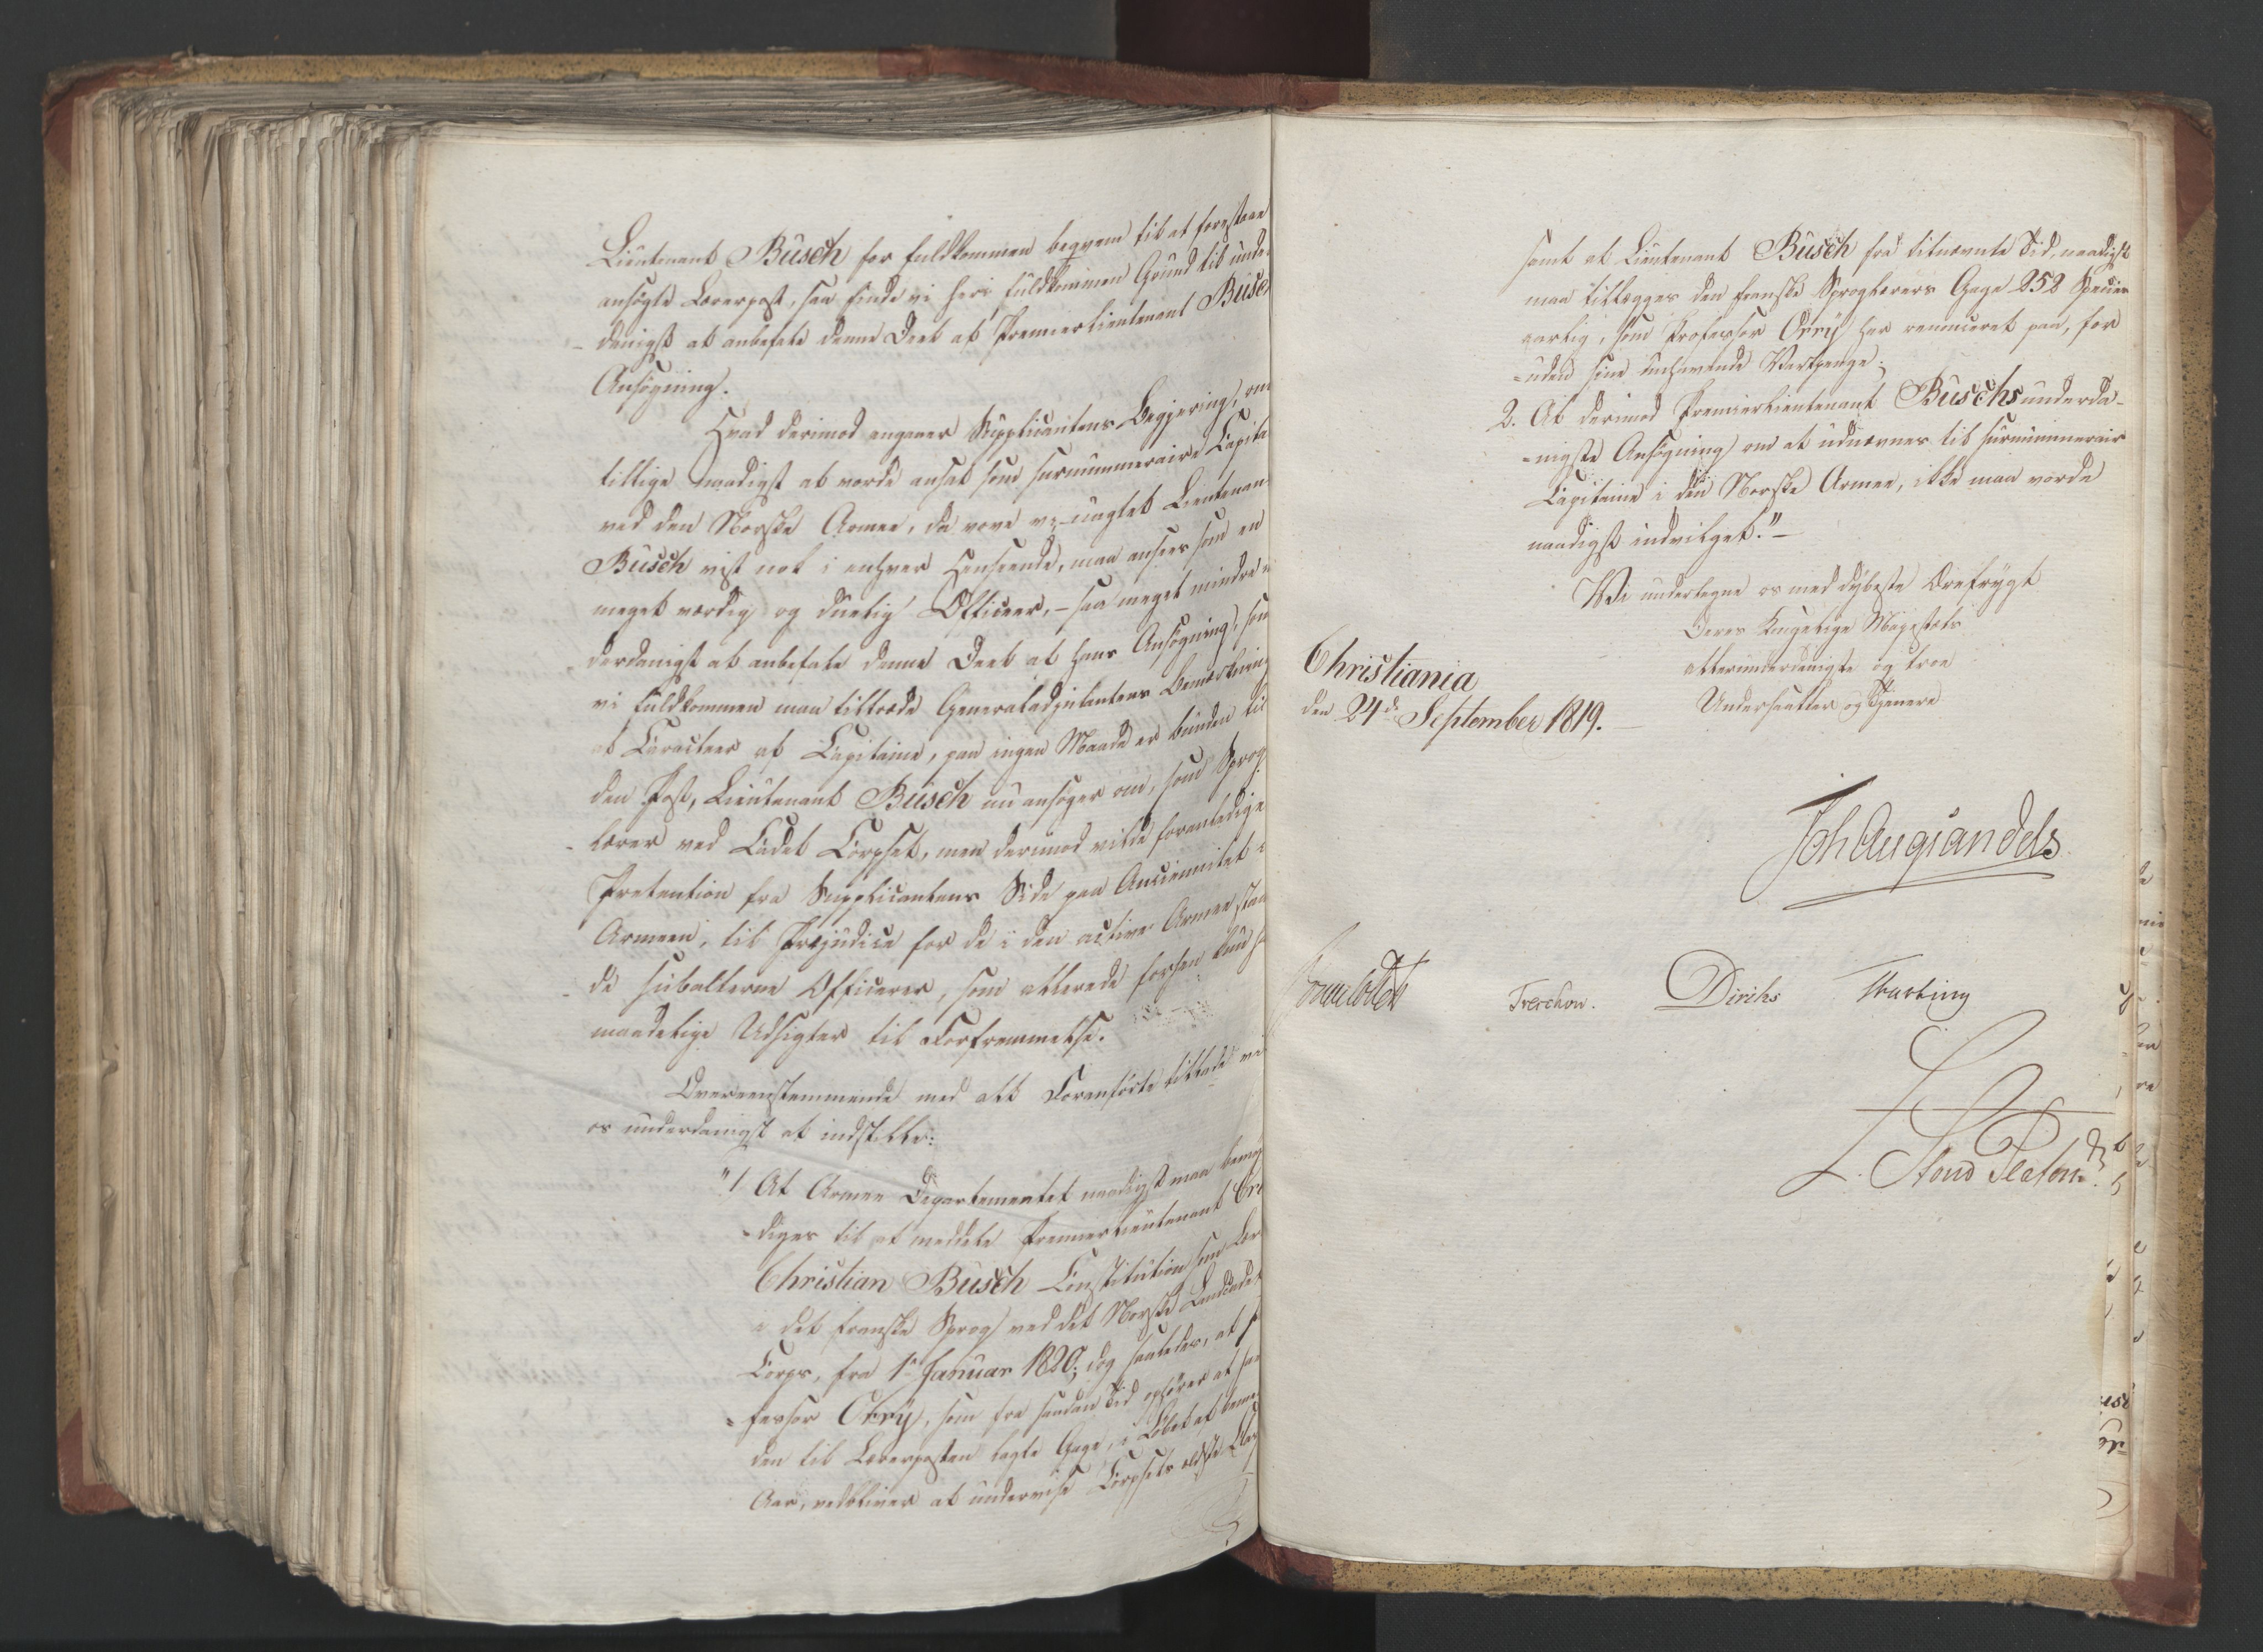 Lieutenant Büsch for fuldkommen beqvem til at forestaae
ansøgte Lærerpost, saa finde vi heri fuldkommen Grund til unde-
-danigst at anbefale denne Deel af Premierlieutenant Büsch
Ansøgning.
Hvad derimod angaaer Supplicantens Begjering, om
tillige naadigst at vorde ansat som surnummeraire Capita
ved den Norske Armee, da vove vi, uagtet Lieutenan
Büsch vist nok i enhver Henseende, maa ansees som en
meget værdig og duelig Officeer, - saa meget mindre
derdanigst at anbefale denne Deel af hans Ansøgning, som
vi fuldkommen maa tiltræde Generaladjutantens Bemærkning
at Caracteer af Capitaine, paa ingen Maade er bunden til
den Post, Lieutenant Büsch nu ansøger om, som Sprog-
-lærer ved Cadet Corpset, men derimod vilde foranledige
Pretention fra Supplicantens Side paa Anciennitet i
Armeen, til Præjudice for de i den active Armee staa
-de subalterne Officerer, som allerede forhen kun
maadelige Udsigter til Forfremmelse.
Overeensstemmende med alt Foranførte tillade vi
os underdanigst at indstille:
"1 At Armee Departementet naadigst maa bemyn
-diges til at meddele Premierlieutenant
Christian Büsch Constitution som Lær
i det franske Sprog ved det Norske Landcadet
Corps, fra 1ste Januar 1820; dog saaledes, at
-fessor Orry, som fra samme Tid ophører at
den til Lærerposten lagte Gage, i Løbet af
Aar, vedbliver at undervise Corpsets ældste Clas
samt at Lieutenant Büsch fra bemeldte Tid, naadigst
maa tillægges den franske Sproglærers Gage 252 Species
aarlig, som Professor Orry har renunceret paa, for
-uden sine havende Vartpenge;
2. At derimod Premierlieutenant Büschs underda-
-nigste Ansøgning om at udnævnes til surnummerair
Capitaine i den Norske Armee, ikke maa vorde
naadigst indvilget." -
Vi undertegne os med dybeste Ærefrygt
Deres Kongelige Majestæts
allerunderdanigste og troe
Undersaatter og Tjenere
Christiania
den 24de September 1819. -
Joh Aug Sandels
Sommerhielm
Treschow.
Diriks
Krebs
L. Stoud Platou